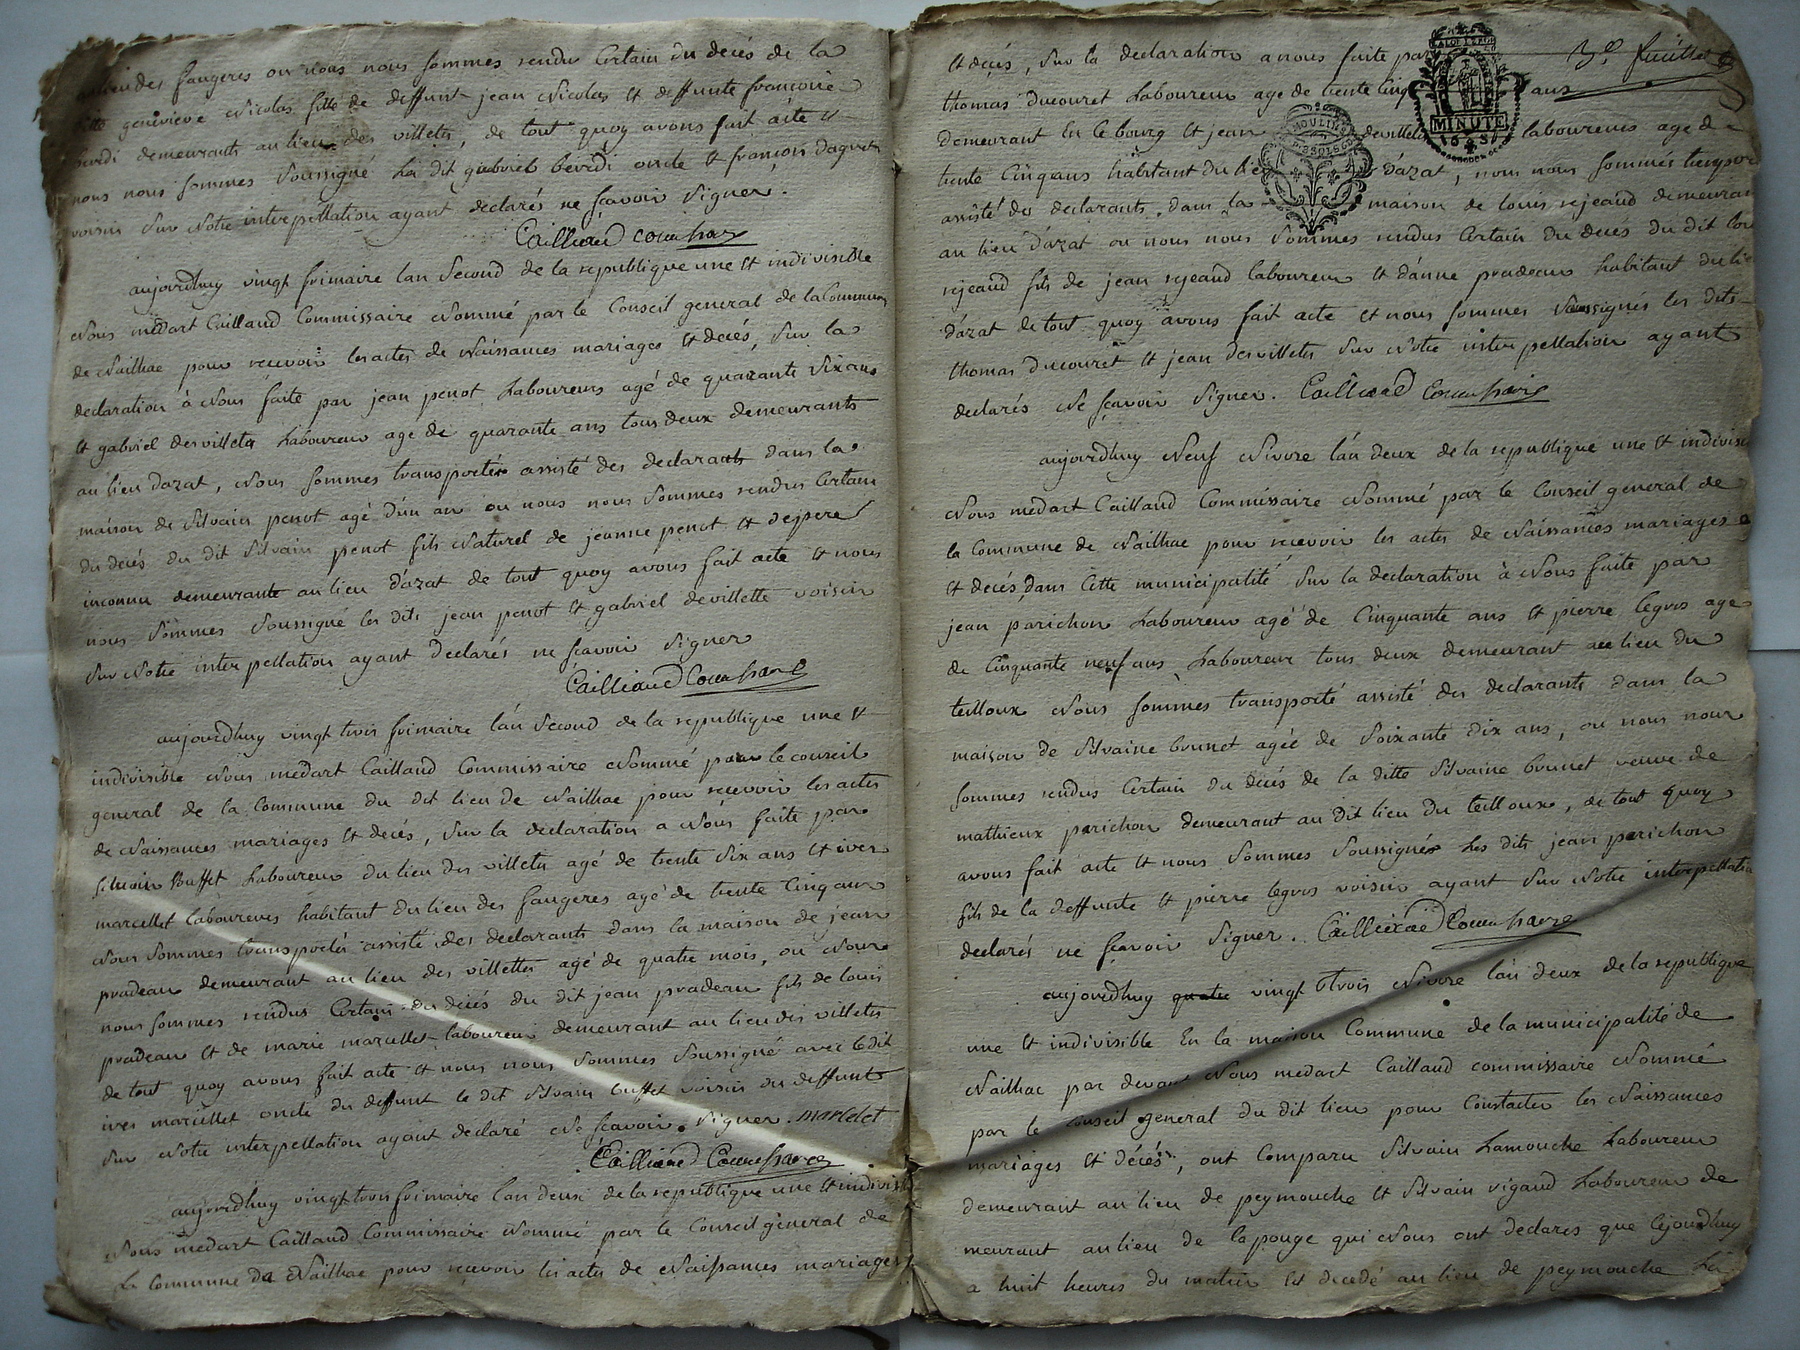 lieu des faugeres ou nous nous sommes rendu Certain du decés de la
ditte genevieve Nicolas fille de deffunt jean Nicolas et deffunte francoise
beridi demeurants au lieu des villetes, de tout quoy avons fait acte et
nous nous sommes soussigné Le dit gabriel beridi oncle et francois daguet
voisin sur Notre interpellation ayant declarés ne sçavoir signer.
Cailliaud commissaire
aujourdhuy vingt frimaire lan second de la republique une et indivisible
Nous médart Caillaud Commissaire Nommé par le Conseil general de la Commune
de Nailhac pour recevoir les actes de Naissances mariages et decés, sur la
declaration à Nous faite par jean penot Laboureurs agé de quarante six ans
et gabriel desvilletes Laboureur age de quarante ans tous deux demeurants
au lieu dazat, Nous sommes transportés assisté des declarants dans la
maison de silvain penot agé d'un an ou nous nous sommes rendus Certain
du decés du dit silvain penot fils Naturel de jeanne penot et de pere
inconnu demeurante au lieu d'azat de tout quoy avons fait acte et nous
nous sommes soussigné les dits jean penot et gabriel devillette voisin
sur Notre interpellation ayant declarés ne sçavoir signer
Cailliaud Commissaire
aujourdhuy vingt trois frimaire l'an second de la republique une et
indivisible Nous medart Caillaud Commissaire Nommé par le conseil
general de la Commune du dit lieu de Nailhac pour recevoir les actes
de Naissances mariages et decés, sur la declaration a Nous faite par
silvain Buffet Laboureur du lieu des villetes agé de trente six ans et iver
marcellet laboureurs habitant du lieu des faugeres agé de trente Cinq ans
Nous sommes transportés assisté des declarants dans la maison de jean
pradeau demeurant au lieu des villettes agé de quatre mois, ou Nous
nous sommes rendus Certain du decés du dit jean pradeau fils de louis
pradeau et de marie marcellet laboureur demeurant au lieu des villetes
de tout quoy avons fait acte et nous nous sommes soussigné avec ledit
iver marcellet oncle du deffunt le dit silvain buffet voisin du deffunt
sur Notre interpellation ayant declaré Ne sçavoir signer. marcelet
Cailliaud Commissaire
aujourdhuy vingt trois frimaire lan deux de la republique une et indivisi
Nous médart Caillaud Commissaire Nommé par le Conseil general de
La Commune de Nailhac pour recevoir les actes de Naissances mariages
3e feuillet
et decés, sur la declaration a nous faite par
thomas ducouret Laboureur age de trente Cinq ans
demeurant En Ce bourg et jean desvilletes laboureurs age de
trente Cinq ans habitant du lieu d'azat, nous nous sommes transpor
assisté des declarants dans la maison de louis rejeaud demeuran
au lieu d'azat ou nous nous sommes rendus Certain du decés du dit louis
rejeaud fils de jean rejeaud laboureur et d'anne pradeau habitant du lie
d'azat de tout quoy avons fait acte et nous sommes soussignés les dits
thomas ducouret et jean desvilletes sur Notre interpellation ayant
declarés Ne sçavoir signer. Cailliaud Commissaire
MINUTE
MOULINS
aujourdhuy Neuf Nivose l'an deux de la republique une et indivisi
Nous medart Caillaud Commissaire Nommé par le Conseil general de
la Commune de Nailhac pour recevoir les actes de Naissances mariages
et decés dans Cette municipalité sur la declaration à Nous faite par
jean parichon Laboureur agé de Cinquante ans et pierre legros age
de Cinquante neuf ans Laboureur tous deux demeurant au lieu du
teilloux Nous sommes transporté assisté des declarants dans la
maison de silvaine brunet agée de soixante dix ans, ou nous nous
sommes rendus Certain du decés de la ditte silvaine brunet veuve de
mathieux parichon demeurant au dit lieu du teilloux, de tout quoy
avons fait acte et nous sommes soussignés Les dits jean parichon
fils de la deffunte et pierre legros voisin ayant sur Notre interpellatio
declarés ne sçavoir signer. Cailliaud Commissaire
aujourdhuy quatre vingt trois Nivose l'an deux de la republique
une et indivisible En la maison Commune de la municipalité de
Nailhac par devant Nous medart Caillaud commissaire Nommé
par le Conseil general du dit lieu pour Constater les Naissances
mariages et décés, ont Comparu silvain Lamouche Laboureur
demeurant au lieu de peymouche et silvain rigaud Laboureur de
meurant au lieu de la pouge qui Nous ont declares que Cejourdhuy
a huit heures du matin Est decedé au lieu de peymouche La